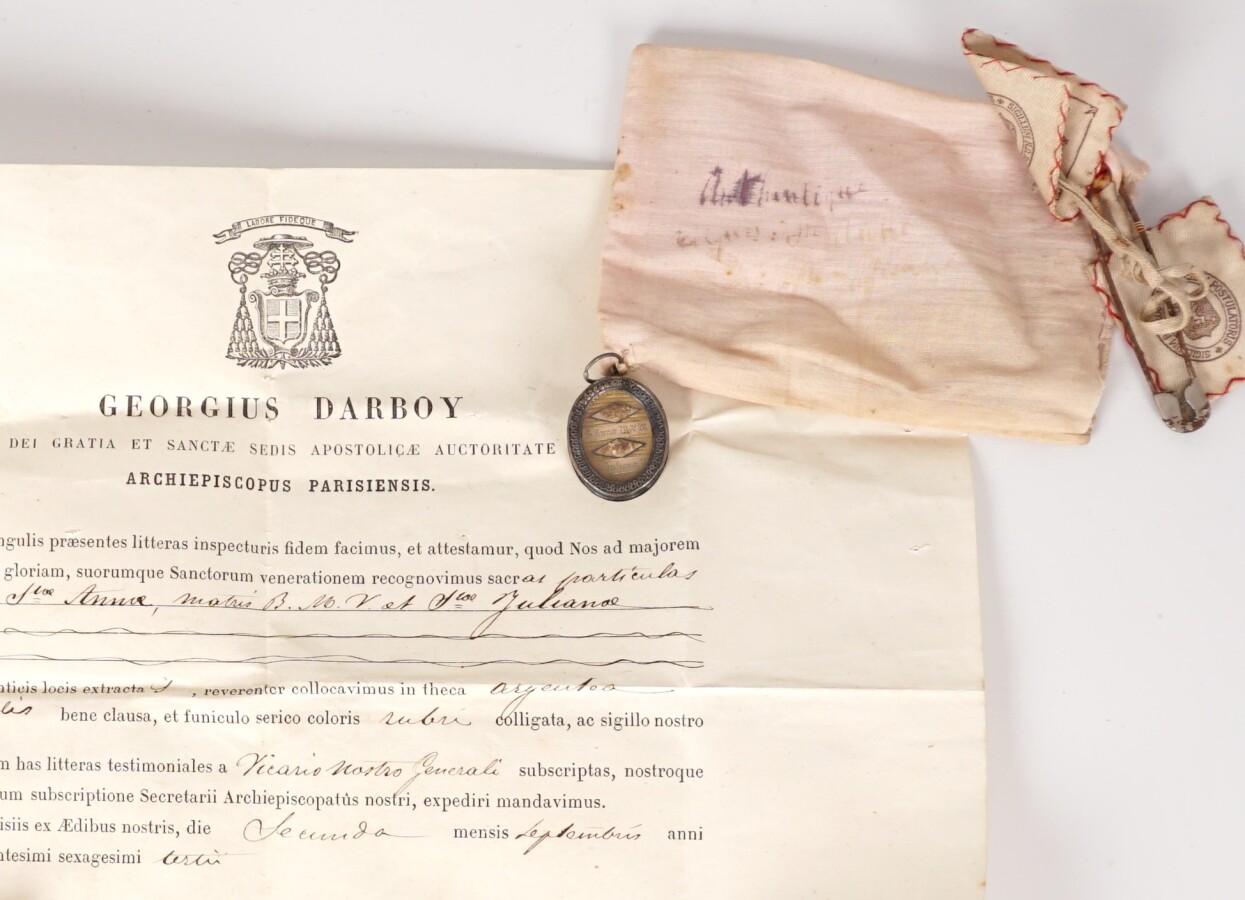 LABORE FIDEQUE
GEORGIUS DARBOY
DEI GRATIA ET SANCTÆ SEDIS APOSTOLICÆ AUCTORITATE
ARCHIEPISCOPUS PARISIENSIS.
ngulis præsentes litteras inspecturis fidem facimus, et attestamur, quod Nos ad majorem
gloriam, suorumque Sanctorum venerationem recognovimus sacras particulas
Stæ Annæ, matris B. M. V. et Stæ Julianæ
nticis locis extractas, reverenter collocavimus in theca argentea
lis bene clausa, et funiculo serico coloris rubri colligata, ac sigillo nostro
m has litteras testimoniales a Vicario nostro Generali subscriptas, nostroque
um subscriptione Secretarii Archiepiscopatûs nostri, expediri mandavimus.
isiis ex Ædibus nostris, die Secunda mensis septembris anni
ntesimi sexagesimi tertii
Authentique
SIGILLUM
POSTULATORIS